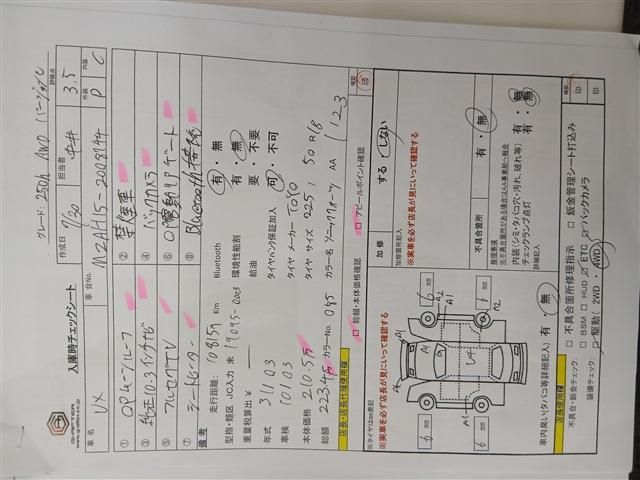 G-RAFTER
入庫時チェックシート
グレード: 250h AWD バージョンL
作成日 7/30 担当者 中井 評価点 3.5
車名 UX 車台No. MZAH15-2008144 外装 D 内装 C
① OPムーンルーフ ② 禁煙車
③ 純正10.3インチナビ ④ バックカメラ
⑤ フルセグTV ⑥ OP電動リアゲート
⑦ シートヒーター ⑧ Bluetooth接続
備考
走行距離: 108159 Km Bluetooth 有・無
型指・類区 JC入力 未 19095-0003 環境性能割 有・無
重量税算出 ¥ 給油 要・不要
年式 31 03 タイヤパンク保証加入 可・不可
車検 10 03 タイヤメーカー TOYO
本体価格 210.5万 タイヤサイズ 225 / 50 R/18
総額 223.4万 カラーNo. 085 カラー名 AA 1123
店長・店長代理使用欄 □ 総額・本体価格確認 □ アピールポイント確認 確認 印
※タイヤはmm表記
※実車を必ず店長が見にいって確認する
加修 する・しない
加修箇所記入
※実車を必ず店長が見にいって確認する
不具合箇所 有・無
修理事項
※不具合箇所がある場合はAA事業部へ報告
内装(シミ・タバコ穴・汚れ、破れ等) 有・無
チェックランプ点灯 有・無
詳細記入
6 6 6 6
A1 A1 A2 A1 U4 G
車内臭い(タバコ等詳細記入) 有・無
店長使用欄
不具合・鈑金チェック: □ 不具合箇所修理指示 □ 鈑金管理シート打込み
装備チェック: □ BSM □ HUD □ ETC □ バックカメラ
□ 駆動(2WD・4WD)
確認 印 印